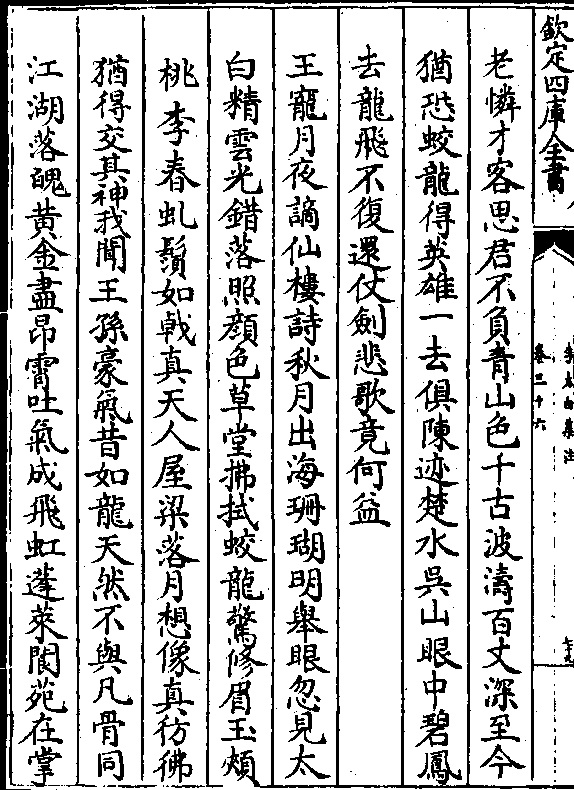 欽定四庫全書
李太白集注
卷三十六
老憐才客思君不負青山色千古波濤百丈深至今
猶恐蛟龍得英雄一去俱陳迹楚水吳山眼中碧鳳
去龍飛不復還仗劍悲歌竟何益
王寵月夜謫仙樓詩秋月出海珊瑚明舉眼忽見太
白精雲光錯落照顔色草堂拂拭蛟龍驚修眉玉頰
桃李春虬鬚如戟真天人屋梁落月想像真彷彿
猶得交其神我聞王孫豪氣昔如龍天然不與凡骨同
江湖落魄黄金盡昂霄吐氣成飛虹蓬萊閬苑在掌